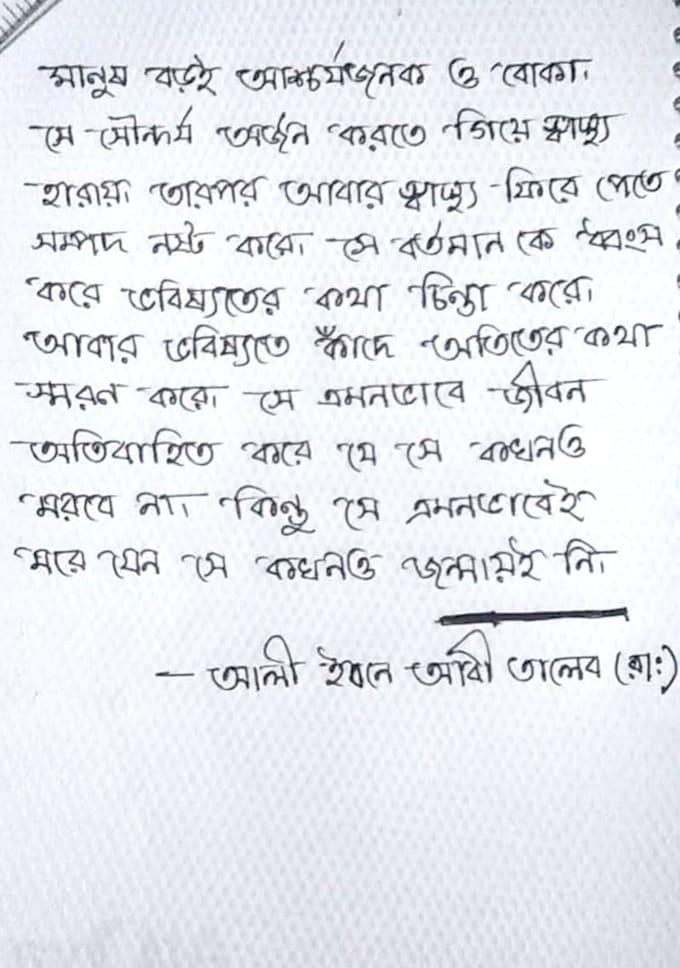 মানুষ বড়ই আশ্চর্যজনক ও বোকা।
সে সৌন্দর্য অর্জন করতে গিয়ে স্বাস্থ্য
হারায়। তারপর আবার স্বাস্থ্য ফিরে পেতে
সম্পদ নষ্ট করে। সে বর্তমান কে ধ্বংস
করে ভবিষ্যতের কথা চিন্তা করে।
আবার ভবিষ্যতে কাঁদে অতিতের কথা
স্মরন করে। সে এমনভাবে জীবন
অতিবাহিত করে যে সে কখনও
মরবে না। কিন্তু সে এমনভাবেই
মরে যেন সে কখনও জন্মায়ই নি।
— আলী ইবনে আবী তালেব (রা:)